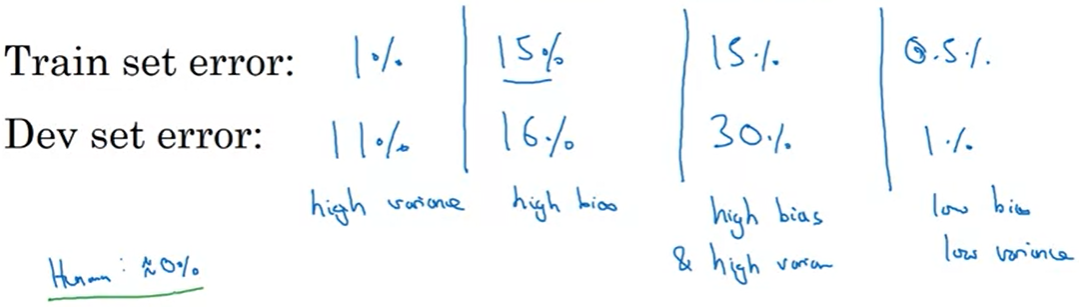 Train set error: 1% 15% 15% 0.5%
Dev set error: 11% 16% 30% 1%
high variance high bias high bias low bias
& high varian low variance
Human: ≈0%